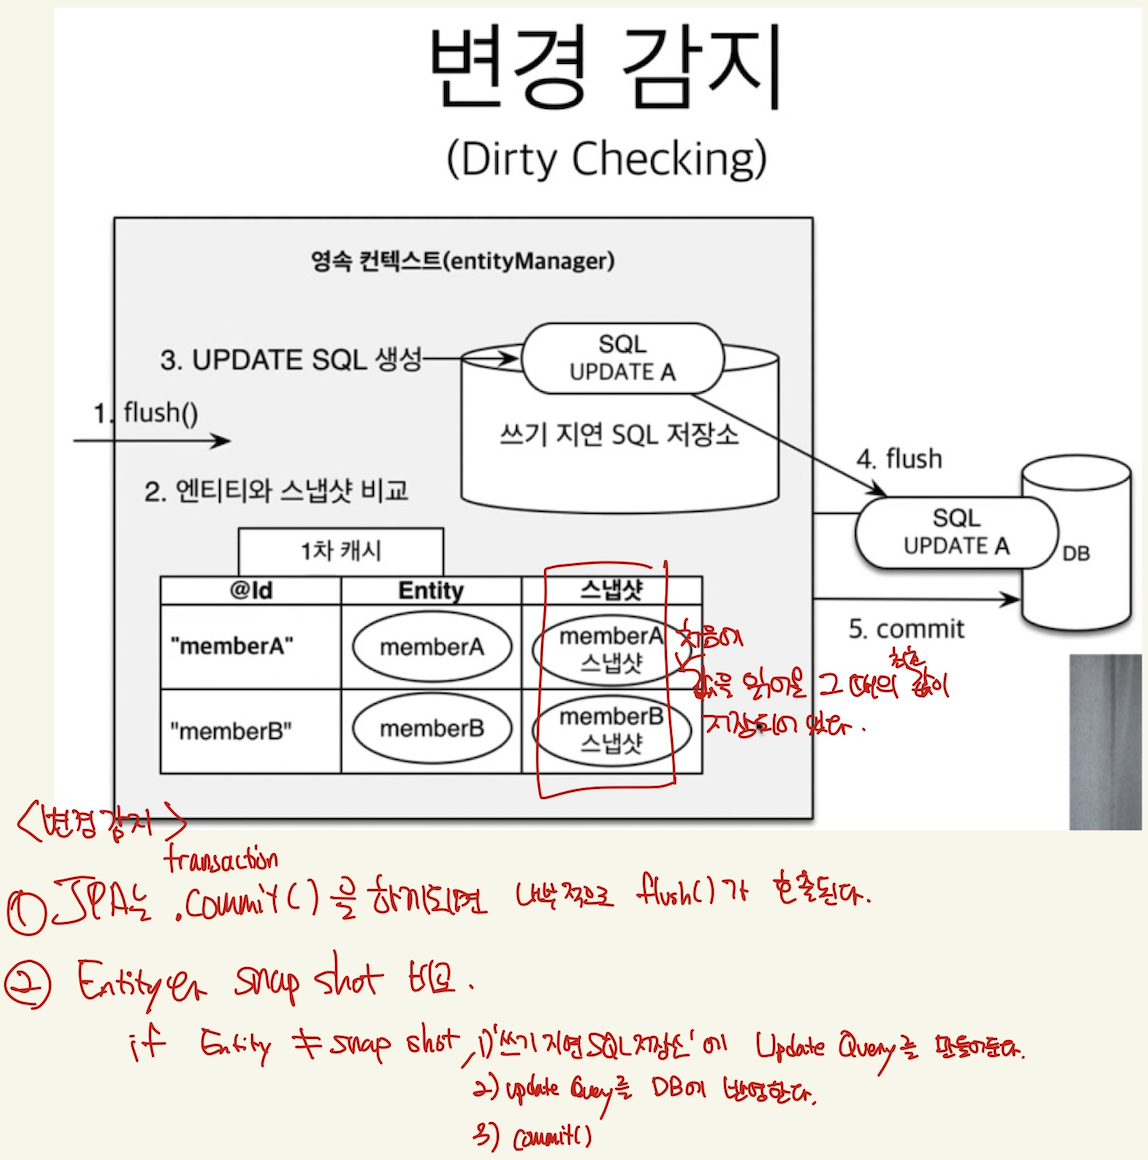 변경 감지
(Dirty Checking)
영속 컨텍스트(entityManager)
3. UPDATE SQL 생성
SQL
UPDATE A
1. flush()
쓰기 지연 SQL 저장소
2. 엔티티와 스냅샷 비교
4. flush
SQL
UPDATE A
DB
5. commit
1차 캐시
@Id Entity 스냅샷
"memberA" memberA memberA
스냅샷
"memberB" memberB memberB
스냅샷
처음에
최초
값을 읽어올 그 때의 값이
저장되어 있다.
<변경 감지>
transaction
① JPA는 .commit()을 하게되면 내부적으로 flush()가 호출된다.
② Entity와 snap shot 비교.
if Entity ≠ snap shot, 1) '쓰기 지연 SQL 저장소'에 Update Query를 만들어둔다.
2) update Query를 DB에 반영한다.
3) commit()